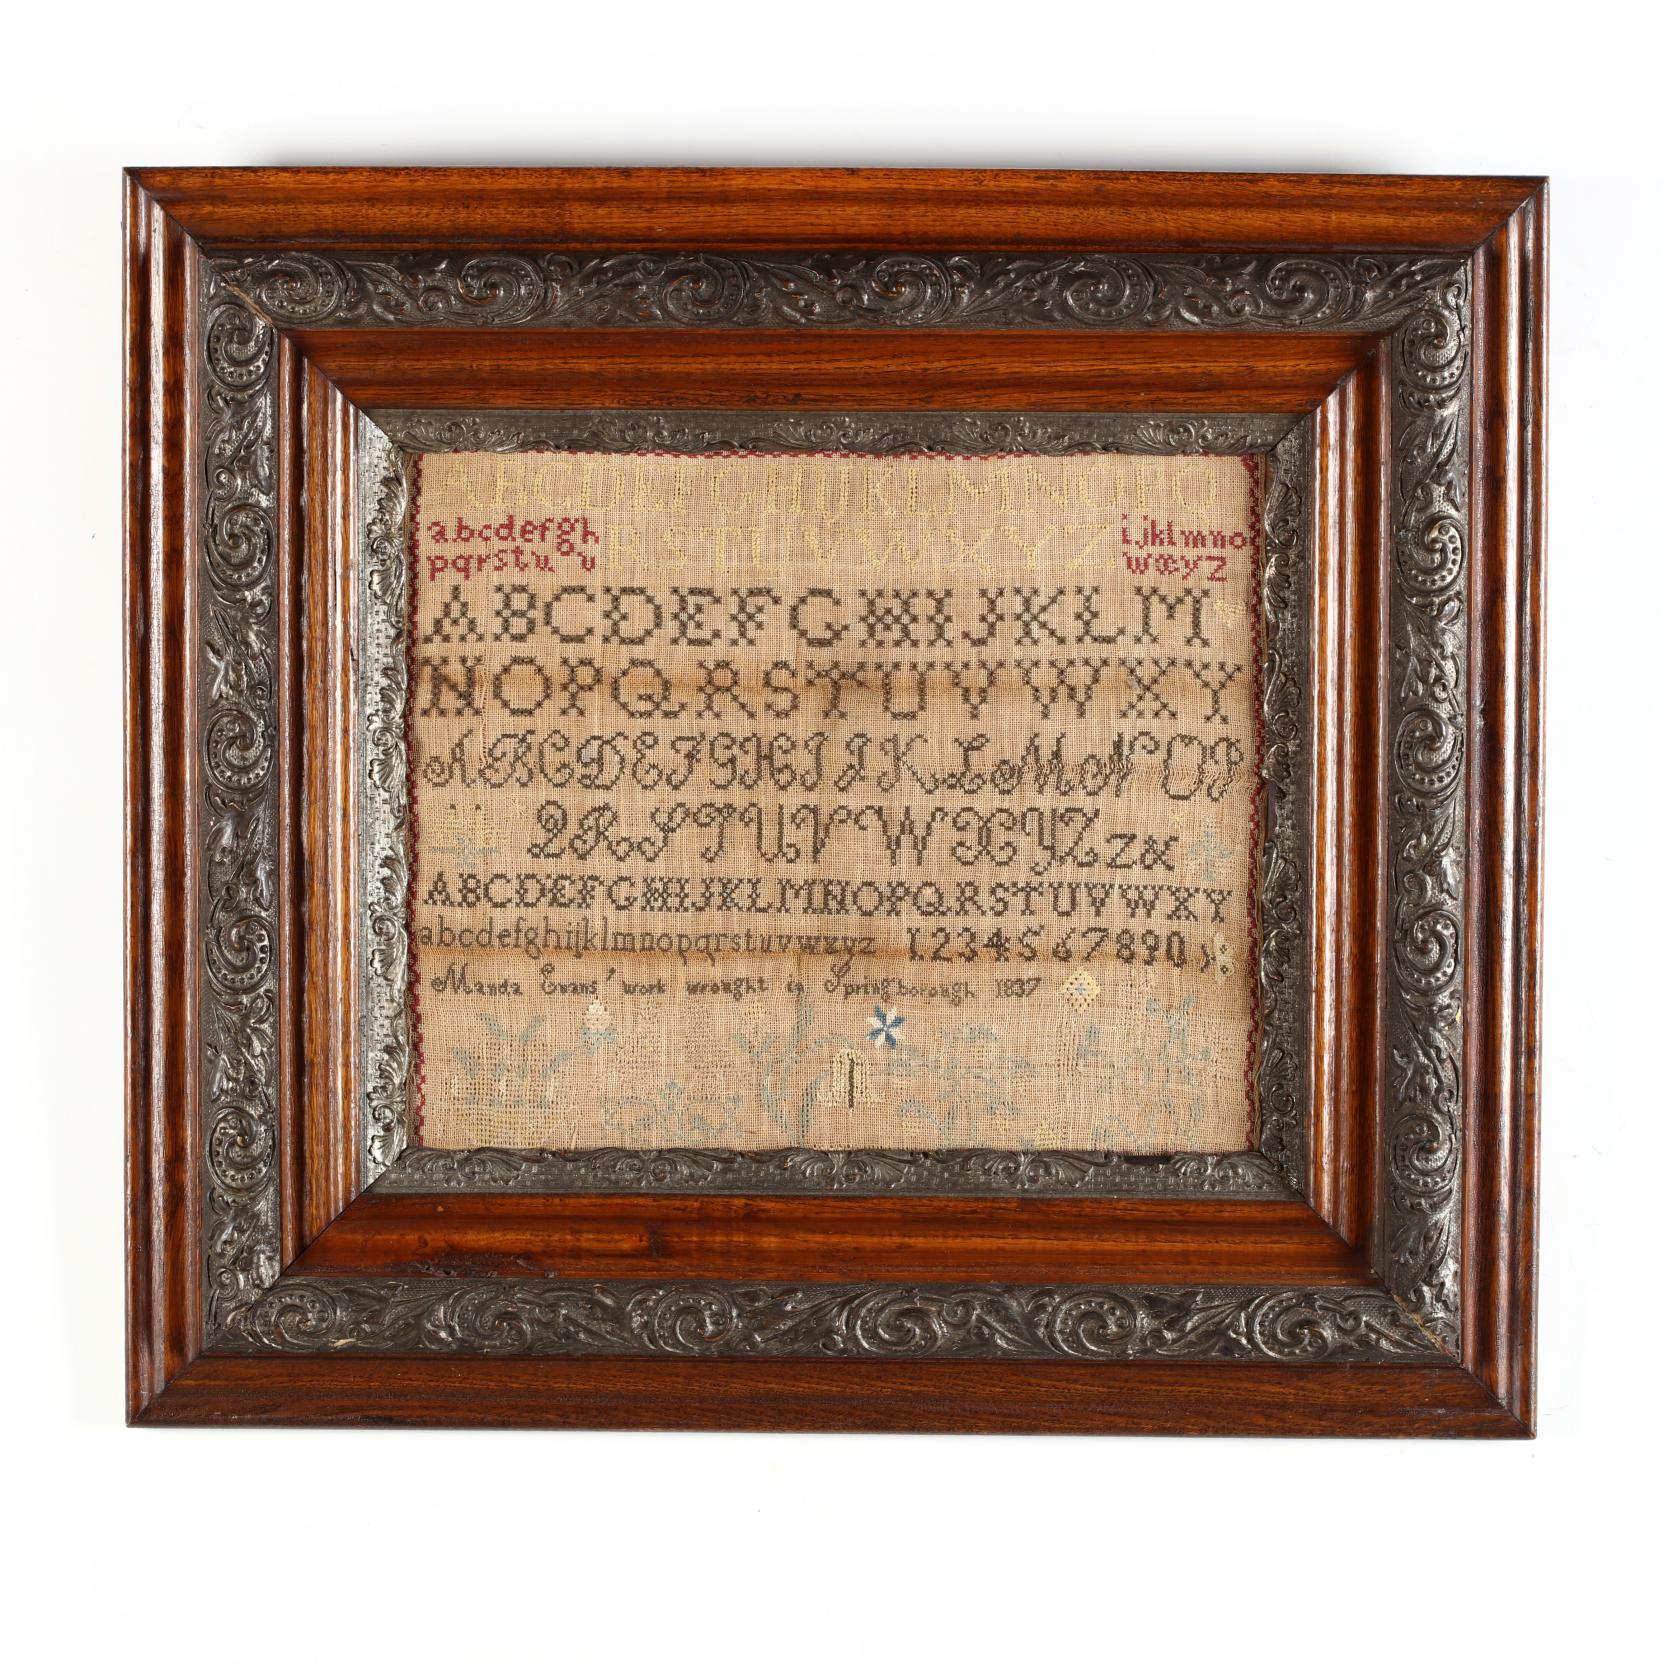 ABCDEFGHIJKLMNOPQ
abcdefgh RSTUVWXYZ ijklmno
pqrstuv wxyz
ABCDEFGHIJKLM
NOPQRSTUVWXY
ABCDEFGHIJKLMNOP
QRSTUVWXYZz&
ABCDEFGHIJKLMNOPQRSTUVWXY
abcdefghijklmnopqrstuvwxyz 1234567890
Manda Evans' work wrought in Springborough 1837